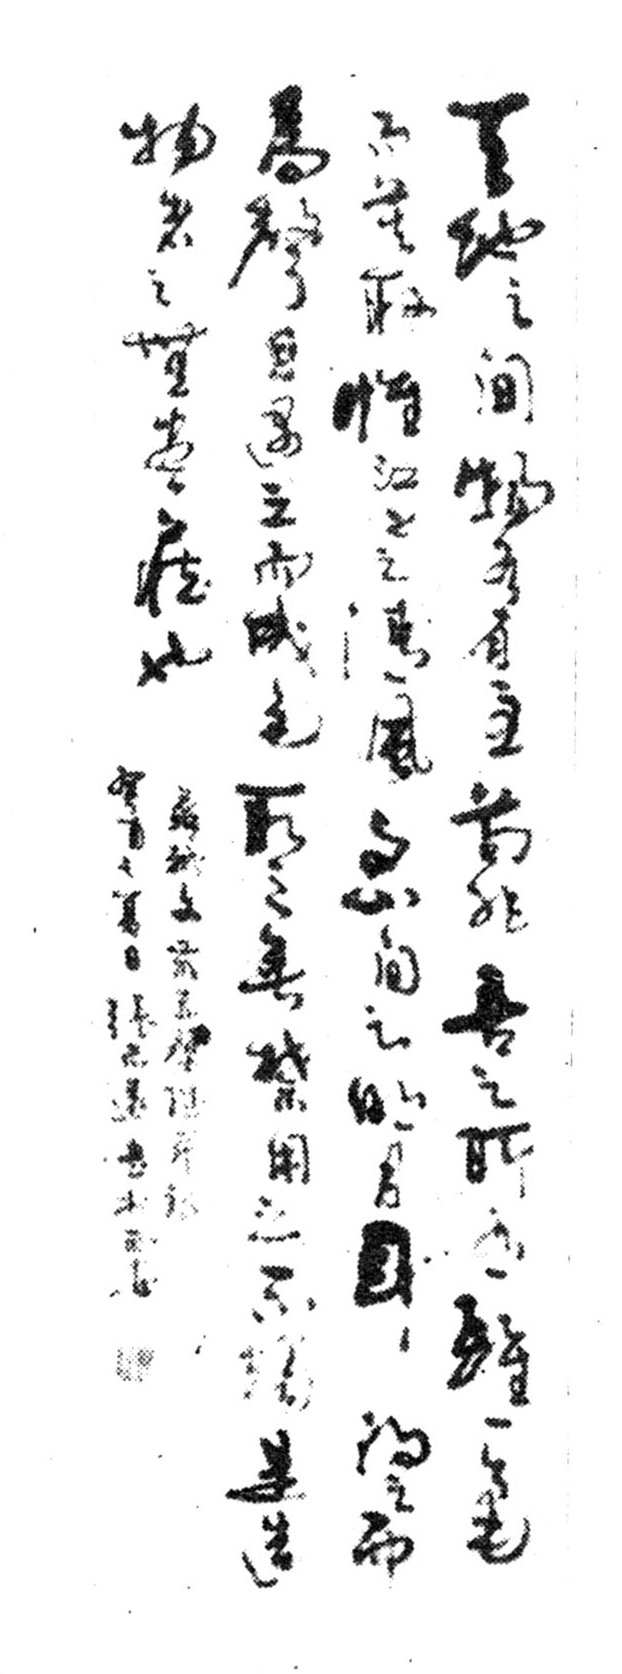 天地之間物各有主苟非吾之所有雖一毫
而莫取惟江上之清風與山間之明月耳得之而
為聲目遇之而成色取之無禁用之不竭是造
物者之無盡藏也
蘇軾文前赤壁賦節錄
夏日